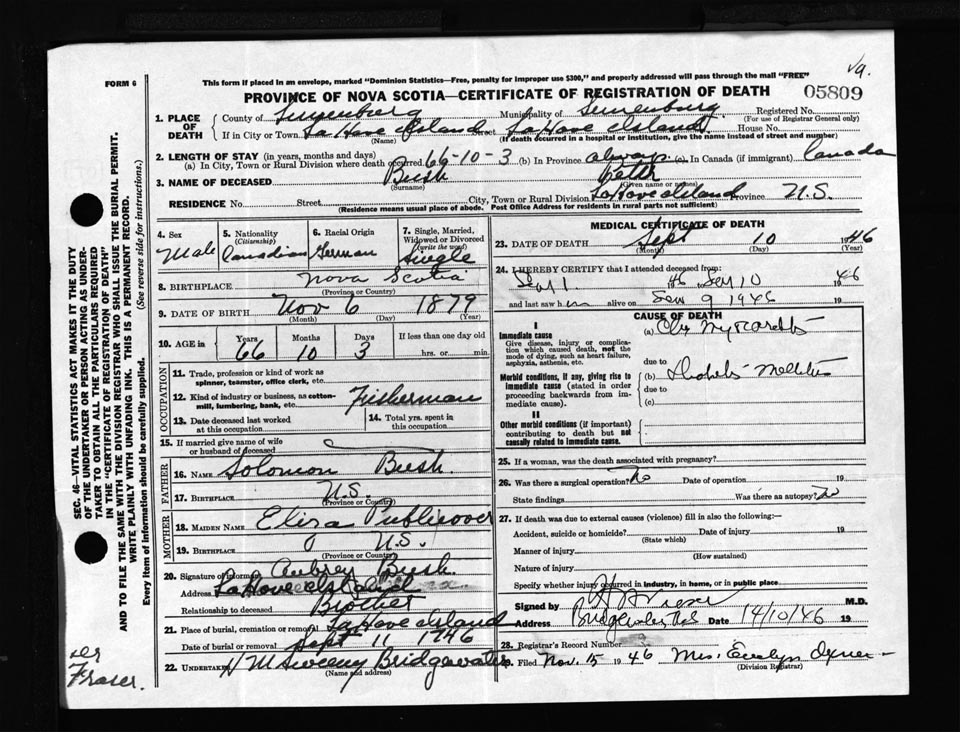 FORM 6
This form if placed in an envelope, marked "Dominion Statistics—Free, penalty for improper use $300," and properly addressed will pass through the mail "FREE"
PROVINCE OF NOVA SCOTIA—CERTIFICATE OF REGISTRATION OF DEATH
05809
1. PLACE OF DEATH
County of Lunenburg Municipality of Lunenburg Registered No.
(For use of Registrar General only)
If in City or Town LaHave Island Street LaHave Island House No.
(Name) (If death occurred in a hospital or institution, give the name instead of street and number)
2. LENGTH OF STAY (in years, months and days)
(a) In City, Town or Rural Division where death occurred 66-10-3 (b) In Province always (c) In Canada (if immigrant) Canada
3. NAME OF DECEASED Bush
(Surname) (Given name or names)
RESIDENCE No. Street City, Town or Rural Division LaHave Island Province N.S.
(Residence means usual place of abode. Post Office Address for residents in rural parts not sufficient)
4. Sex
Male
5. Nationality
(Citizenship)
Canadian
6. Racial Origin
German
7. Single, Married, Widowed or Divorced
(write the word)
Single
8. BIRTHPLACE Nova Scotia
(Province or Country)
9. DATE OF BIRTH Nov 6 1879
(Month) (Day) (Year)
10. AGE in
Years Months Days If less than one day old
66 10 3 hrs. or min.
OCCUPATION
11. Trade, profession or kind of work as spinner, teamster, office clerk, etc.
12. Kind of industry or business, as cotton-mill, lumbering, bank, etc. Fisherman
13. Date deceased last worked at this occupation
14. Total yrs. spent in this occupation
15. If married give name of wife or husband of deceased
FATHER
16. NAME Solomon Bush.
17. BIRTHPLACE N.S.
(Province or Country)
MOTHER
18. MAIDEN NAME Eliza Publicover
19. BIRTHPLACE N.S.
(Province or Country)
20. Signature of informant Aubrey Bush.
Address LaHave Island
Relationship to deceased Brother
21. Place of burial, cremation or removal LaHave Island
Date of burial or removal Sept 11 1946
22. UNDERTAKER Sweeny Bridgewater
(Name and address)
MEDICAL CERTIFICATE OF DEATH
23. DATE OF DEATH Sept 10 1946
(Month) (Day) (Year)
24. I HEREBY CERTIFY that I attended deceased from:
Sep 1. 1946 Sep 10 1946
and last saw him alive on Sep 9 1946 19
CAUSE OF DEATH
I
Immediate cause
Give disease, injury or complication which caused death, not the mode of dying, such as heart failure, asphyxia, asthenia, etc.
(a)
due to
Morbid conditions, if any, giving rise to immediate cause (stated in order proceeding backwards from immediate cause).
(b)
due to
(c)
II
Other morbid conditions (if important) contributing to death but not causally related to immediate cause.
25. If a woman, was the death associated with pregnancy?
26. Was there a surgical operation? No Date of operation 19
State findings Was there an autopsy? No
27. If death was due to external causes (violence) fill in also the following:—
Accident, suicide or homicide? Date of injury 19
(State which)
Manner of injury
(How sustained)
Nature of injury
Specify whether injury occurred in industry, in home, or in public place
Signed by M.D.
Address Bridgewater, N.S. Date 14/10/46 19
28. Registrar's Record Number
29. Filed Nov. 15 1946 Mrs. Evelyn
(Division Registrar)
SEC. 46—VITAL STATISTICS ACT MAKES IT THE DUTY OF THE UNDERTAKER OR PERSON ACTING AS UNDERTAKER TO OBTAIN ALL THE PARTICULARS REQUIRED IN THE "CERTIFICATE OF REGISTRATION OF DEATH" AND TO FILE THE SAME WITH THE DIVISION REGISTRAR WHO SHALL ISSUE THE BURIAL PERMIT.
WRITE PLAINLY WITH UNFADING INK. THIS IS A PERMANENT RECORD.
Every item of information should be carefully supplied. (See reverse side for instructions).
Fraser.